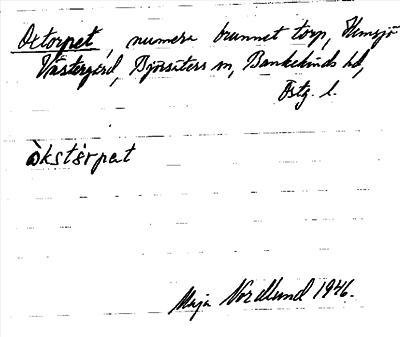 Oxtorpet, numera brunnet torp, Himsjö
Västergård, Björsäters sn, Bankekinds hd,
Östg. l.
òkstårpat
Maja Nordlund 1946.